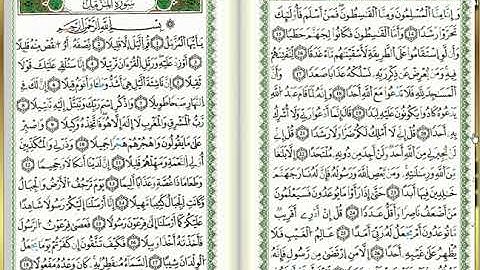 وَأَنَّا مِنَّا الْمُسْلِمُونَ وَمِنَّا الْقَاسِطُونَ فَمَنْ أَسْلَمَ فَأُولَٰئِكَ
تَحَرَّوْا رَشَدًا ١٤ وَأَمَّا الْقَاسِطُونَ فَكَانُوا لِجَهَنَّمَ حَطَبًا ١٥
وَأَلَّوِ اسْتَقَامُوا عَلَى الطَّرِيقَةِ لَأَسْقَيْنَاهُم مَّاءً غَدَقًا ١٦ لِّنَفْتِنَهُمْ
فِيهِ وَمَن يُعْرِضْ عَن ذِكْرِ رَبِّهِ يَسْلُكْهُ عَذَابًا صَعَدًا ١٧ وَأَنَّ
الْمَسَاجِدَ لِلَّهِ فَلَا تَدْعُوا مَعَ اللَّهِ أَحَدًا ١٨ وَأَنَّهُ لَمَّا قَامَ عَبْدُ اللَّهِ
يَدْعُوهُ كَادُوا يَكُونُونَ عَلَيْهِ لِبَدًا ١٩ قُلْ إِنَّمَا أَدْعُو رَبِّي وَلَا
أُشْرِكُ بِهِ أَحَدًا ٢٠ قُلْ إِنِّي لَا أَمْلِكُ لَكُمْ ضَرًّا وَلَا رَشَدًا ٢١ قُلْ إِنِّي
لَن يُجِيرَنِي مِنَ اللَّهِ أَحَدٌ وَلَنْ أَجِدَ مِن دُونِهِ مُلْتَحَدًا ٢٢ إِلَّا بَلَاغًا
مِّنَ اللَّهِ وَرِسَالَاتِهِ وَمَن يَعْصِ اللَّهَ وَرَسُولَهُ فَإِنَّ لَهُ نَارَ جَهَنَّمَ
خَالِدِينَ فِيهَا أَبَدًا ٢٣ حَتَّىٰ إِذَا رَأَوْا مَا يُوعَدُونَ فَسَيَعْلَمُونَ
مَنْ أَضْعَفُ نَاصِرًا وَأَقَلُّ عَدَدًا ٢٤ قُلْ إِنْ أَدْرِي أَقَرِيبٌ
مَّا تُوعَدُونَ أَمْ يَجْعَلُ لَهُ رَبِّي أَمَدًا ٢٥ عَالِمُ الْغَيْبِ فَلَا
يُظْهِرُ عَلَىٰ غَيْبِهِ أَحَدًا ٢٦ إِلَّا مَنِ ارْتَضَىٰ مِن رَّسُولٍ فَإِنَّهُ
سُورَةُ الْمُزَّمِّلِ
بِسْمِ اللَّهِ الرَّحْمَٰنِ الرَّحِيمِ
يَا أَيُّهَا الْمُزَّمِّلُ ١ قُمِ اللَّيْلَ إِلَّا قَلِيلًا ٢ نِّصْفَهُ أَوِ انقُصْ مِنْهُ قَلِيلًا
٣ أَوْ زِدْ عَلَيْهِ وَرَتِّلِ الْقُرْآنَ تَرْتِيلًا ٤ إِنَّا سَنُلْقِي عَلَيْكَ قَوْلًا
ثَقِيلًا ٥ إِنَّ نَاشِئَةَ اللَّيْلِ هِيَ أَشَدُّ وَطْئًا وَأَقْوَمُ قِيلًا ٦ إِنَّ لَكَ فِي
النَّهَارِ سَبْحًا طَوِيلًا ٧ وَاذْكُرِ اسْمَ رَبِّكَ وَتَبَتَّلْ إِلَيْهِ تَبْتِيلًا ٨
رَّبُّ الْمَشْرِقِ وَالْمَغْرِبِ لَا إِلَٰهَ إِلَّا هُوَ فَاتَّخِذْهُ وَكِيلًا ٩ وَاصْبِرْ
عَلَىٰ مَا يَقُولُونَ وَاهْجُرْهُمْ هَجْرًا جَمِيلًا ١٠ وَذَرْنِي وَالْمُكَذِّبِينَ
أُولِي النَّعْمَةِ وَمَهِّلْهُمْ قَلِيلًا ١١ إِنَّ لَدَيْنَا أَنكَالًا وَجَحِيمًا ١٢
وَطَعَامًا ذَا غُصَّةٍ وَعَذَابًا أَلِيمًا ١٣ يَوْمَ تَرْجُفُ الْأَرْضُ وَالْجِبَالُ
وَكَانَتِ الْجِبَالُ كَثِيبًا مَّهِيلًا ١٤ إِنَّا أَرْسَلْنَا إِلَيْكُمْ رَسُولًا شَاهِدًا
عَلَيْكُمْ كَمَا أَرْسَلْنَا إِلَىٰ فِرْعَوْنَ رَسُولًا ١٥ فَعَصَىٰ فِرْعَوْنُ الرَّسُولَ
فَأَخَذْنَاهُ أَخْذًا وَبِيلًا ١٦ فَكَيْفَ تَتَّقُونَ إِن كَفَرْتُمْ يَوْمًا يَجْعَلُ
الْوِلْدَانَ شِيبًا ١٧ السَّمَاءُ مُنفَطِرٌ بِهِ كَانَ وَعْدُهُ مَفْعُولًا ١٨